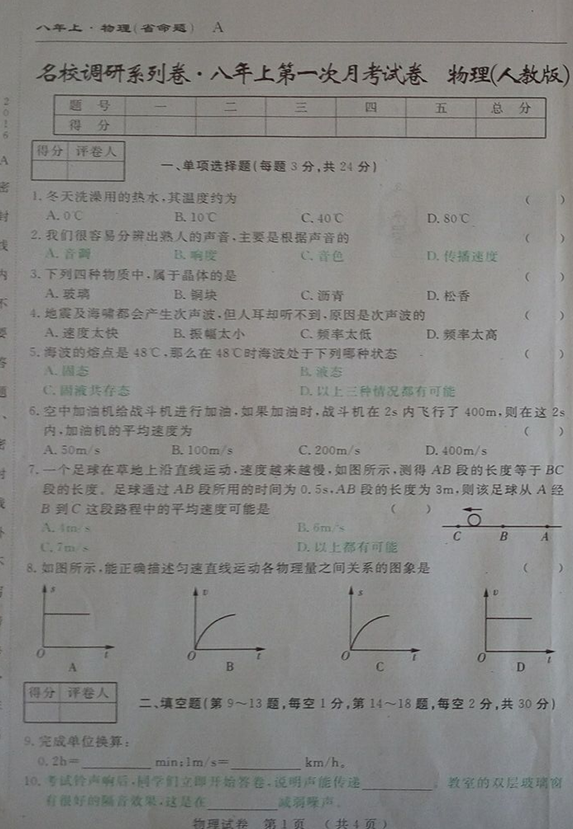 八年上·物理(省命题) A
名校调研系列卷·八年上第一次月考试卷 物理(人教版)
题 号 一 二 三 四 五 总 分
得 分
得分 评卷人
一、单项选择题(每题3分,共24分)
1.冬天洗澡用的热水,其温度约为 ( )
A.0℃ B.10℃ C.40℃ D.80℃
2.我们很容易分辨出熟人的声音,主要是根据声音的 ( )
A.音调 B.响度 C.音色 D.传播速度
3.下列四种物质中,属于晶体的是 ( )
A.玻璃 B.铜块 C.沥青 D.松香
4.地震及海啸都会产生次声波,但人耳却听不到,原因是次声波的 ( )
A.速度太快 B.振幅太小 C.频率太低 D.频率太高
5.海波的熔点是48℃,那么在48℃时海波处于下列哪种状态 ( )
A.固态 B.液态
C.固液共存态 D.以上三种情况都有可能
6.空中加油机给战斗机进行加油,如果加油时,战斗机在2s内飞行了400m,则在这2s
内,加油机的平均速度为 ( )
A.50m/s B.100m/s C.200m/s D.400m/s
7.一个足球在草地上沿直线运动,速度越来越慢,如图所示,测得AB段的长度等于BC
段的长度。足球通过AB段所用的时间为0.5s,AB段的长度为3m,则该足球从A经
B到C这段路程中的平均速度可能是 ( )
A.4m/s B.6m/s
C.7m/s D.以上都有可能
C B A
8.如图所示,能正确描述匀速直线运动各物理量之间关系的图象是 ( )
s v s v
O t O t O t O t
A B C D
得分 评卷人
二、填空题(第9~13题,每空1分,第14~18题,每空2分,共30分)
9.完成单位换算:
0.2h=________min;1m/s=________km/h。
10.考试铃声响后,同学们立即开始答卷,说明声能传递________。教室的双层玻璃窗
有很好的隔音效果,这是在________减弱噪声。
物理试卷 第1页 (共4页)
2016
A
密
封
线
内
不
要
答
题